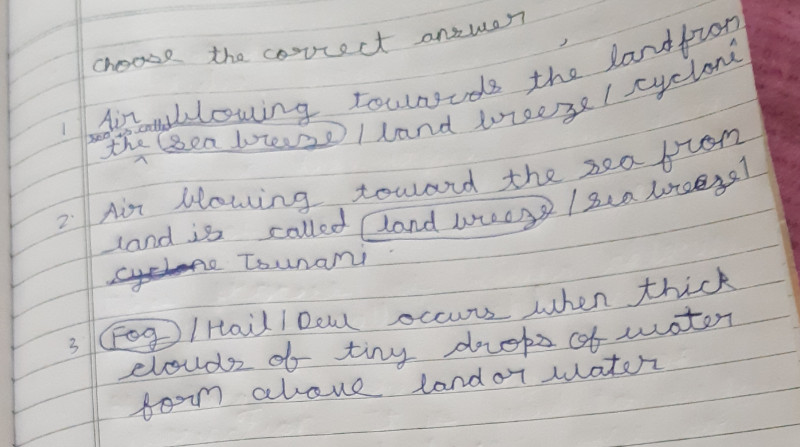 choose the correct answer
1 Air blowing towards the land from
sea is called
the (sea breeze) / land breeze / cyclone
2. Air blowing toward the sea from
land is called (land breeze) / sea breeze /
cyclone Tsunami.
3 (Fog) / Hail / Dew occurs when thick
clouds of tiny drops of water
form above land or water